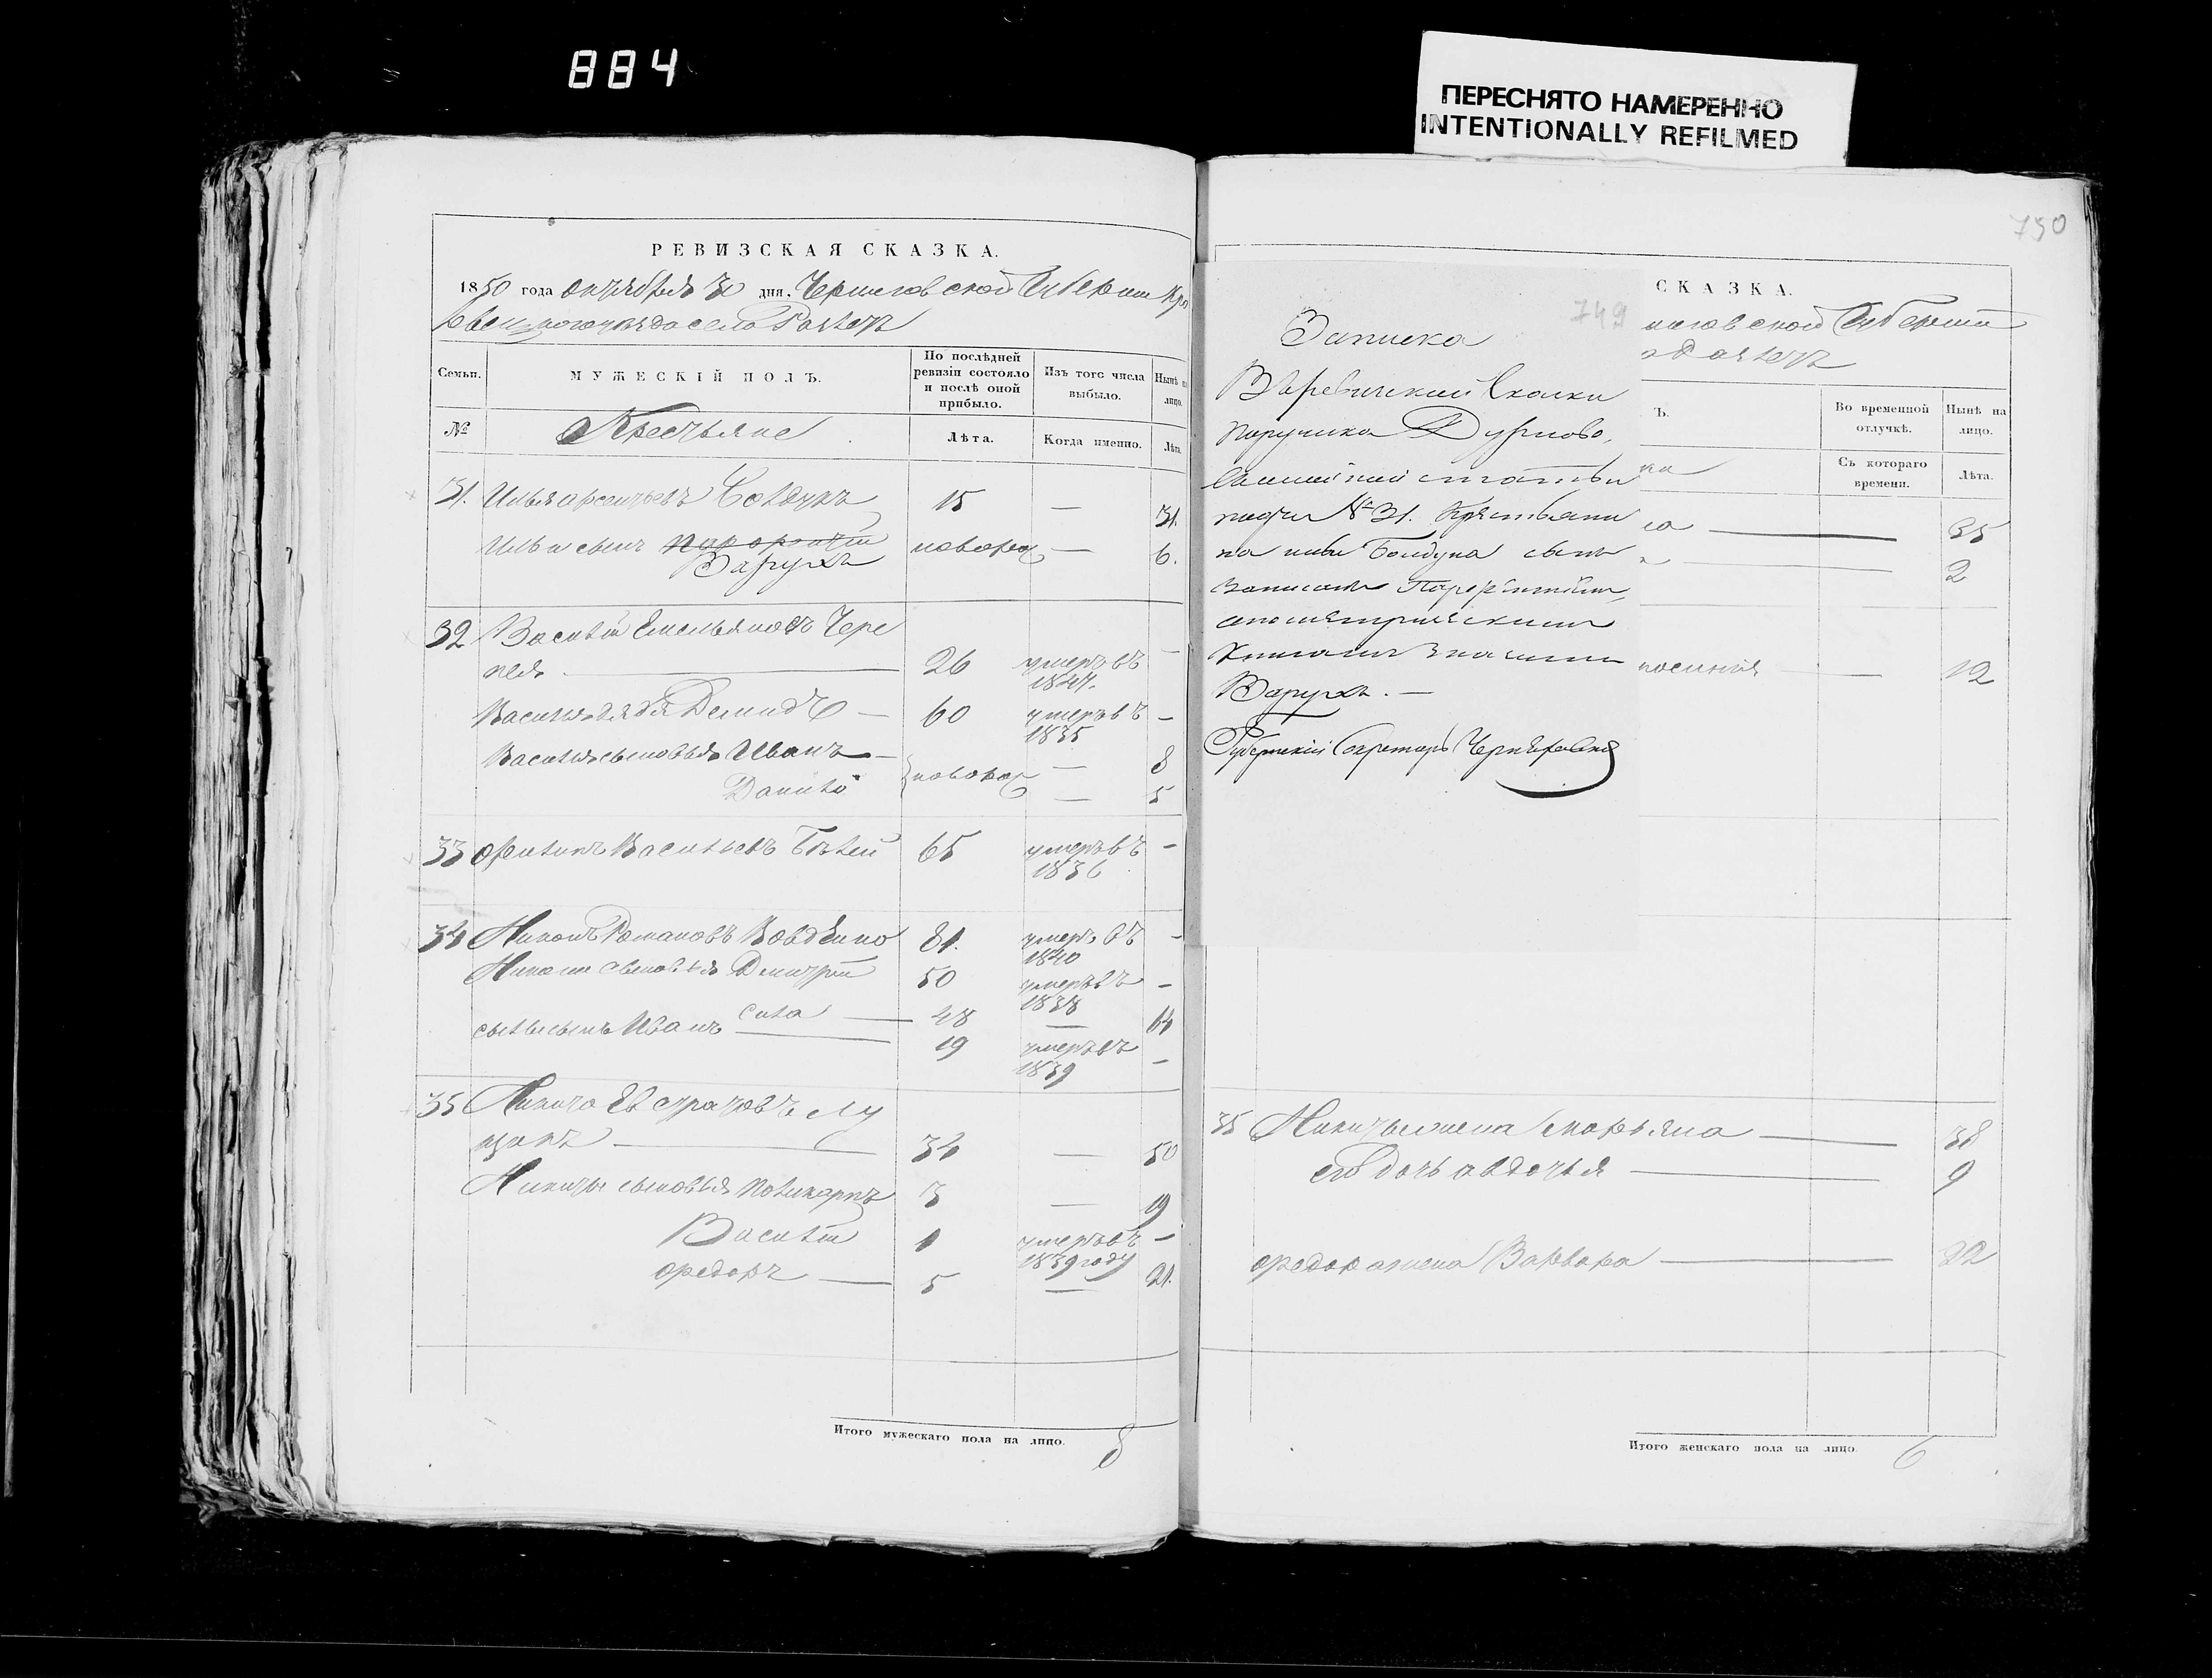 884
ПЕРЕСНЯТО НАМЕРЕННО
INTENTIONALLY REFILMED
РЕВИЗСКАЯ СКАЗКА.
1850 года октября 31 дня, Черниговской Губернии
уезда села
Семьи.
МУЖЕСКІЙ ПОЛЪ.
По послѣдней ревизіи состояло и послѣ оной прибыло.
Изъ того числа выбыло.
Нынѣ на лицо.
№
Крестьяне
Лѣта.
Когда именно.
Лѣта.
31. Илья Болдукъ 15 — 31.
Ильи сынъ новорож — 6.
Варухъ
32 Василій Емельяновъ Чере
пея — 26 умеръ въ 1847. —
Василія дядя Демидъ — 60 умеръ въ 1835 —
Василія сыновья Иванъ — новорож — 8
Данило — 5
33 Филипъ Васильевъ 65 умеръ въ 1836 —
34 Никонъ Романовъ 81. умеръ въ 1840 —
Никона сыновья Дмитрій 50 умеръ въ 1838 —
Сила — 48 — 64
Силы сынъ Иванъ — 19 умеръ въ 1839 —
35 Никита Евстратовъ Лу
щикъ — 34 — 50
Никиты сыновья Поликарпъ 3 — 19
Василій 1 умеръ въ 1839 году —
Федоръ — 5 — 21.
Итого мужескаго пола на лицо. 8
750
749
Записка
В Ревизской Сказки
поручика Дурново,
статьи
подъ № 31. Крестьяни
на Ильи Болдука сынъ
записанъ
апометрическимъ
книгамъ значится
Варухъ. —
Губернскій Секретарь
СКАЗКА.
иговской Губерніи
Ъ.
Во временной отлучкѣ.
Нынѣ на лицо.
Съ котораго времени.
Лѣта.
— 35
— 2
— 12
35 Никиты жена Марьяна — 38
его дочь Авдотья — 9
Федора жена Варвара — 22
Итого женскаго пола на лицо. 6